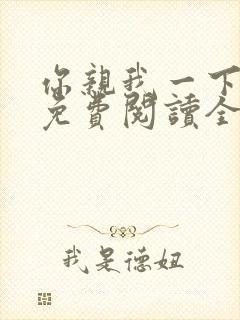 你親我一下
免費閱讀全
我是德妞